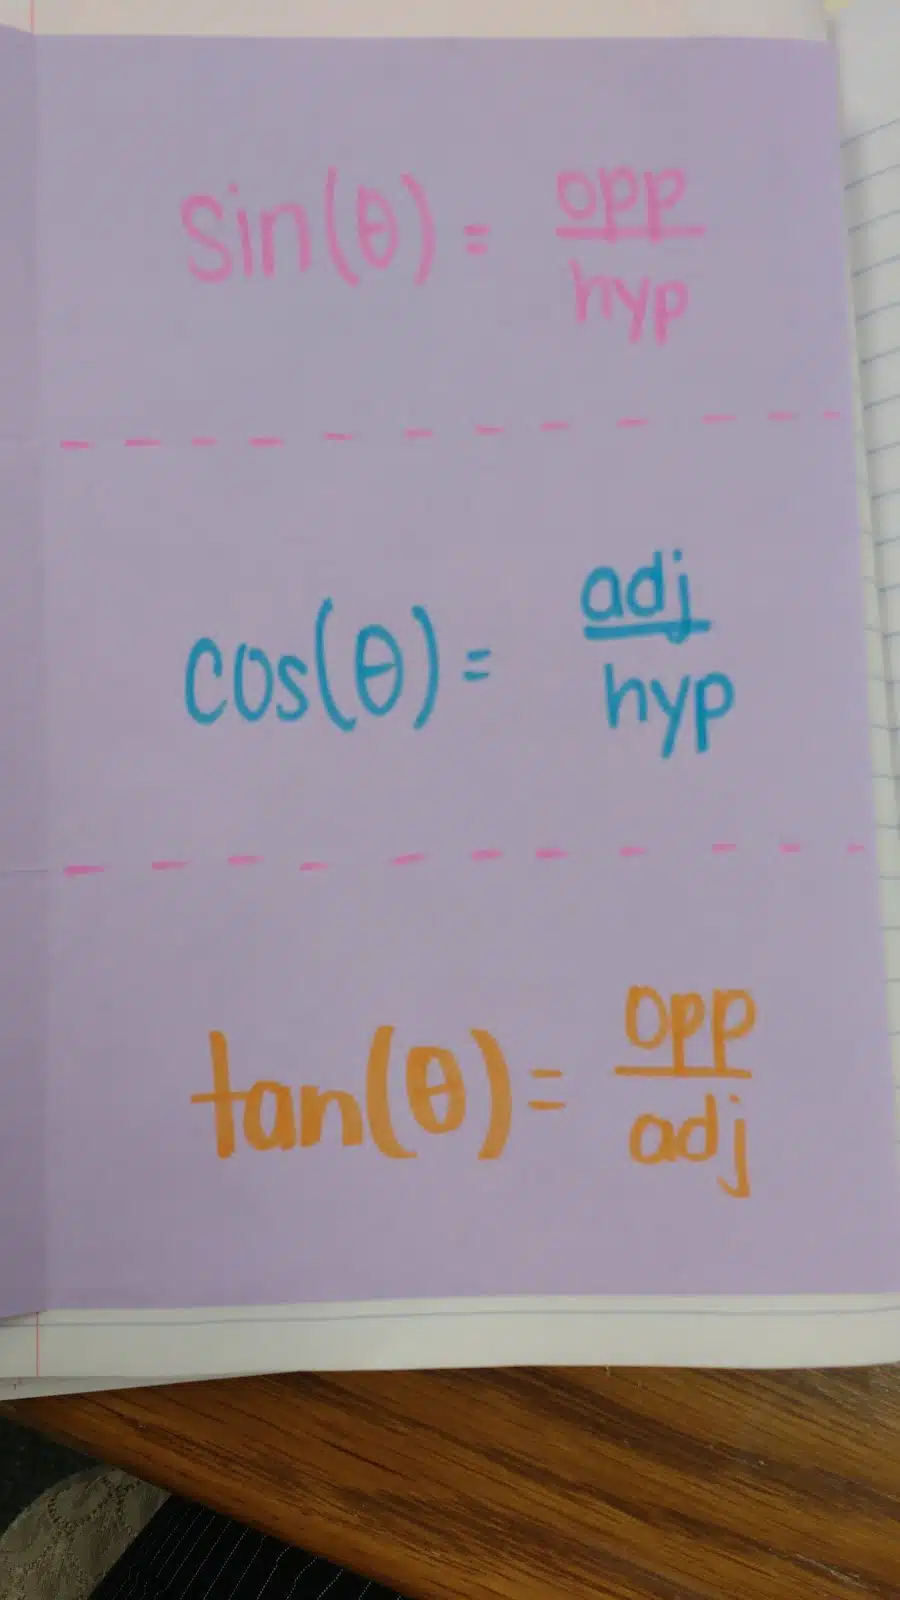 sin(θ) = opp/hyp
cos(θ) = adj/hyp
tan(θ) = opp/adj